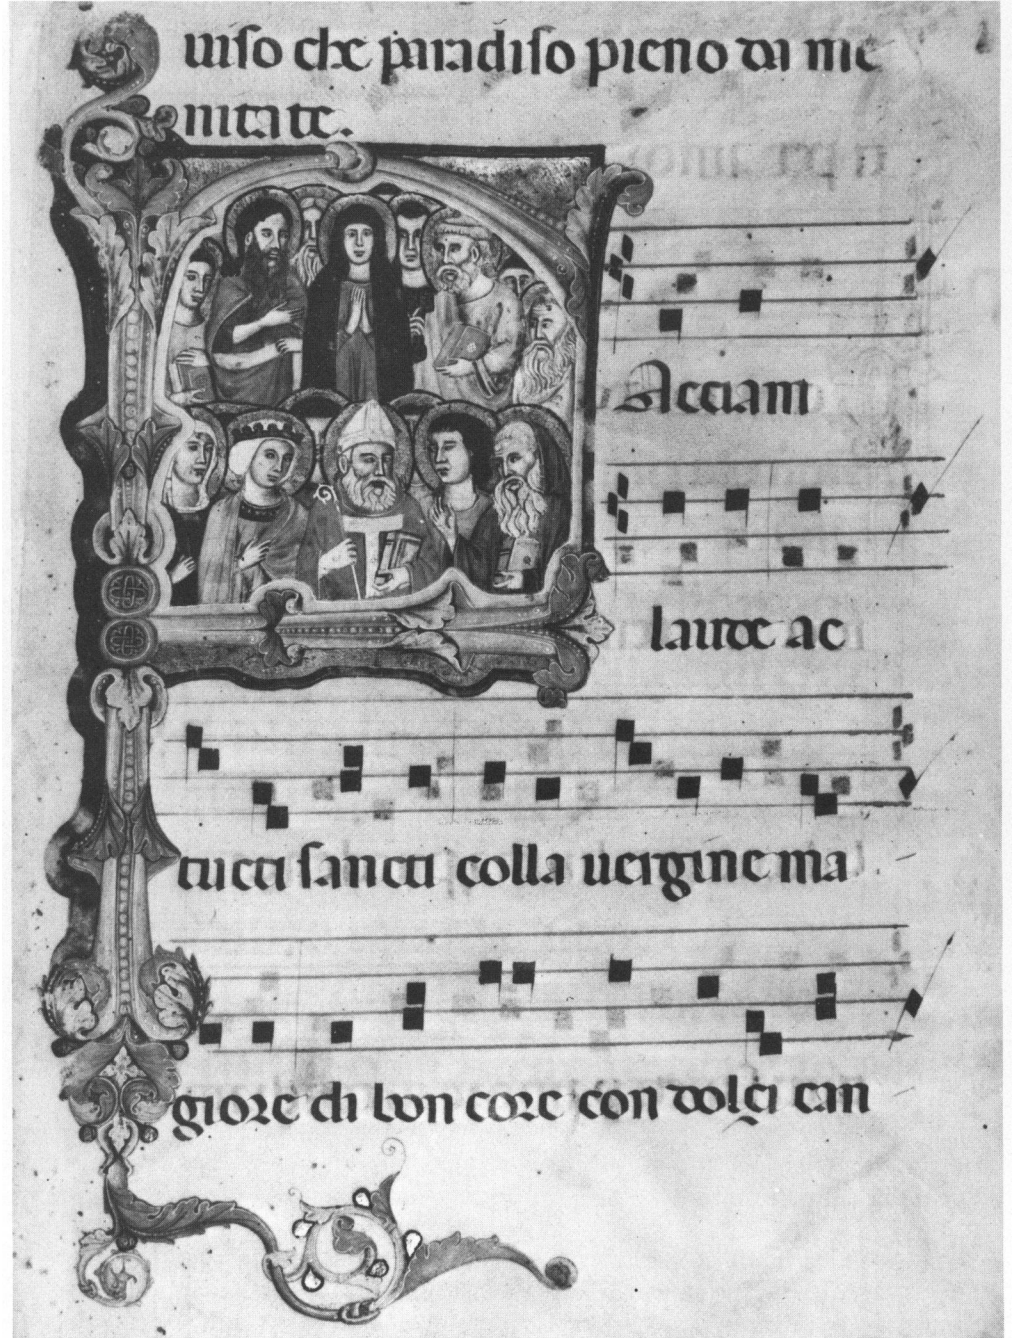 uiso che paradiso pieno dai me
nitate.
Acciam
laude ac
tucti sancti colla uergine ma
giore di bon core con dolçi can